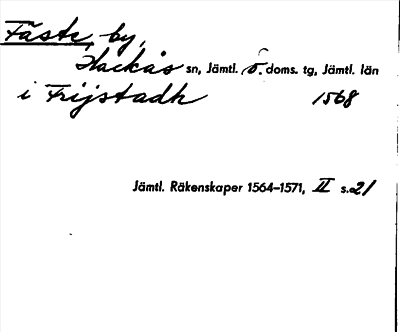 Fäste, by,
Hackås sn, Jämtl. ö. doms. tg, Jämtl. län
i Frijstadh 1568
Jämtl. Räkenskaper 1564–1571, II s. 21